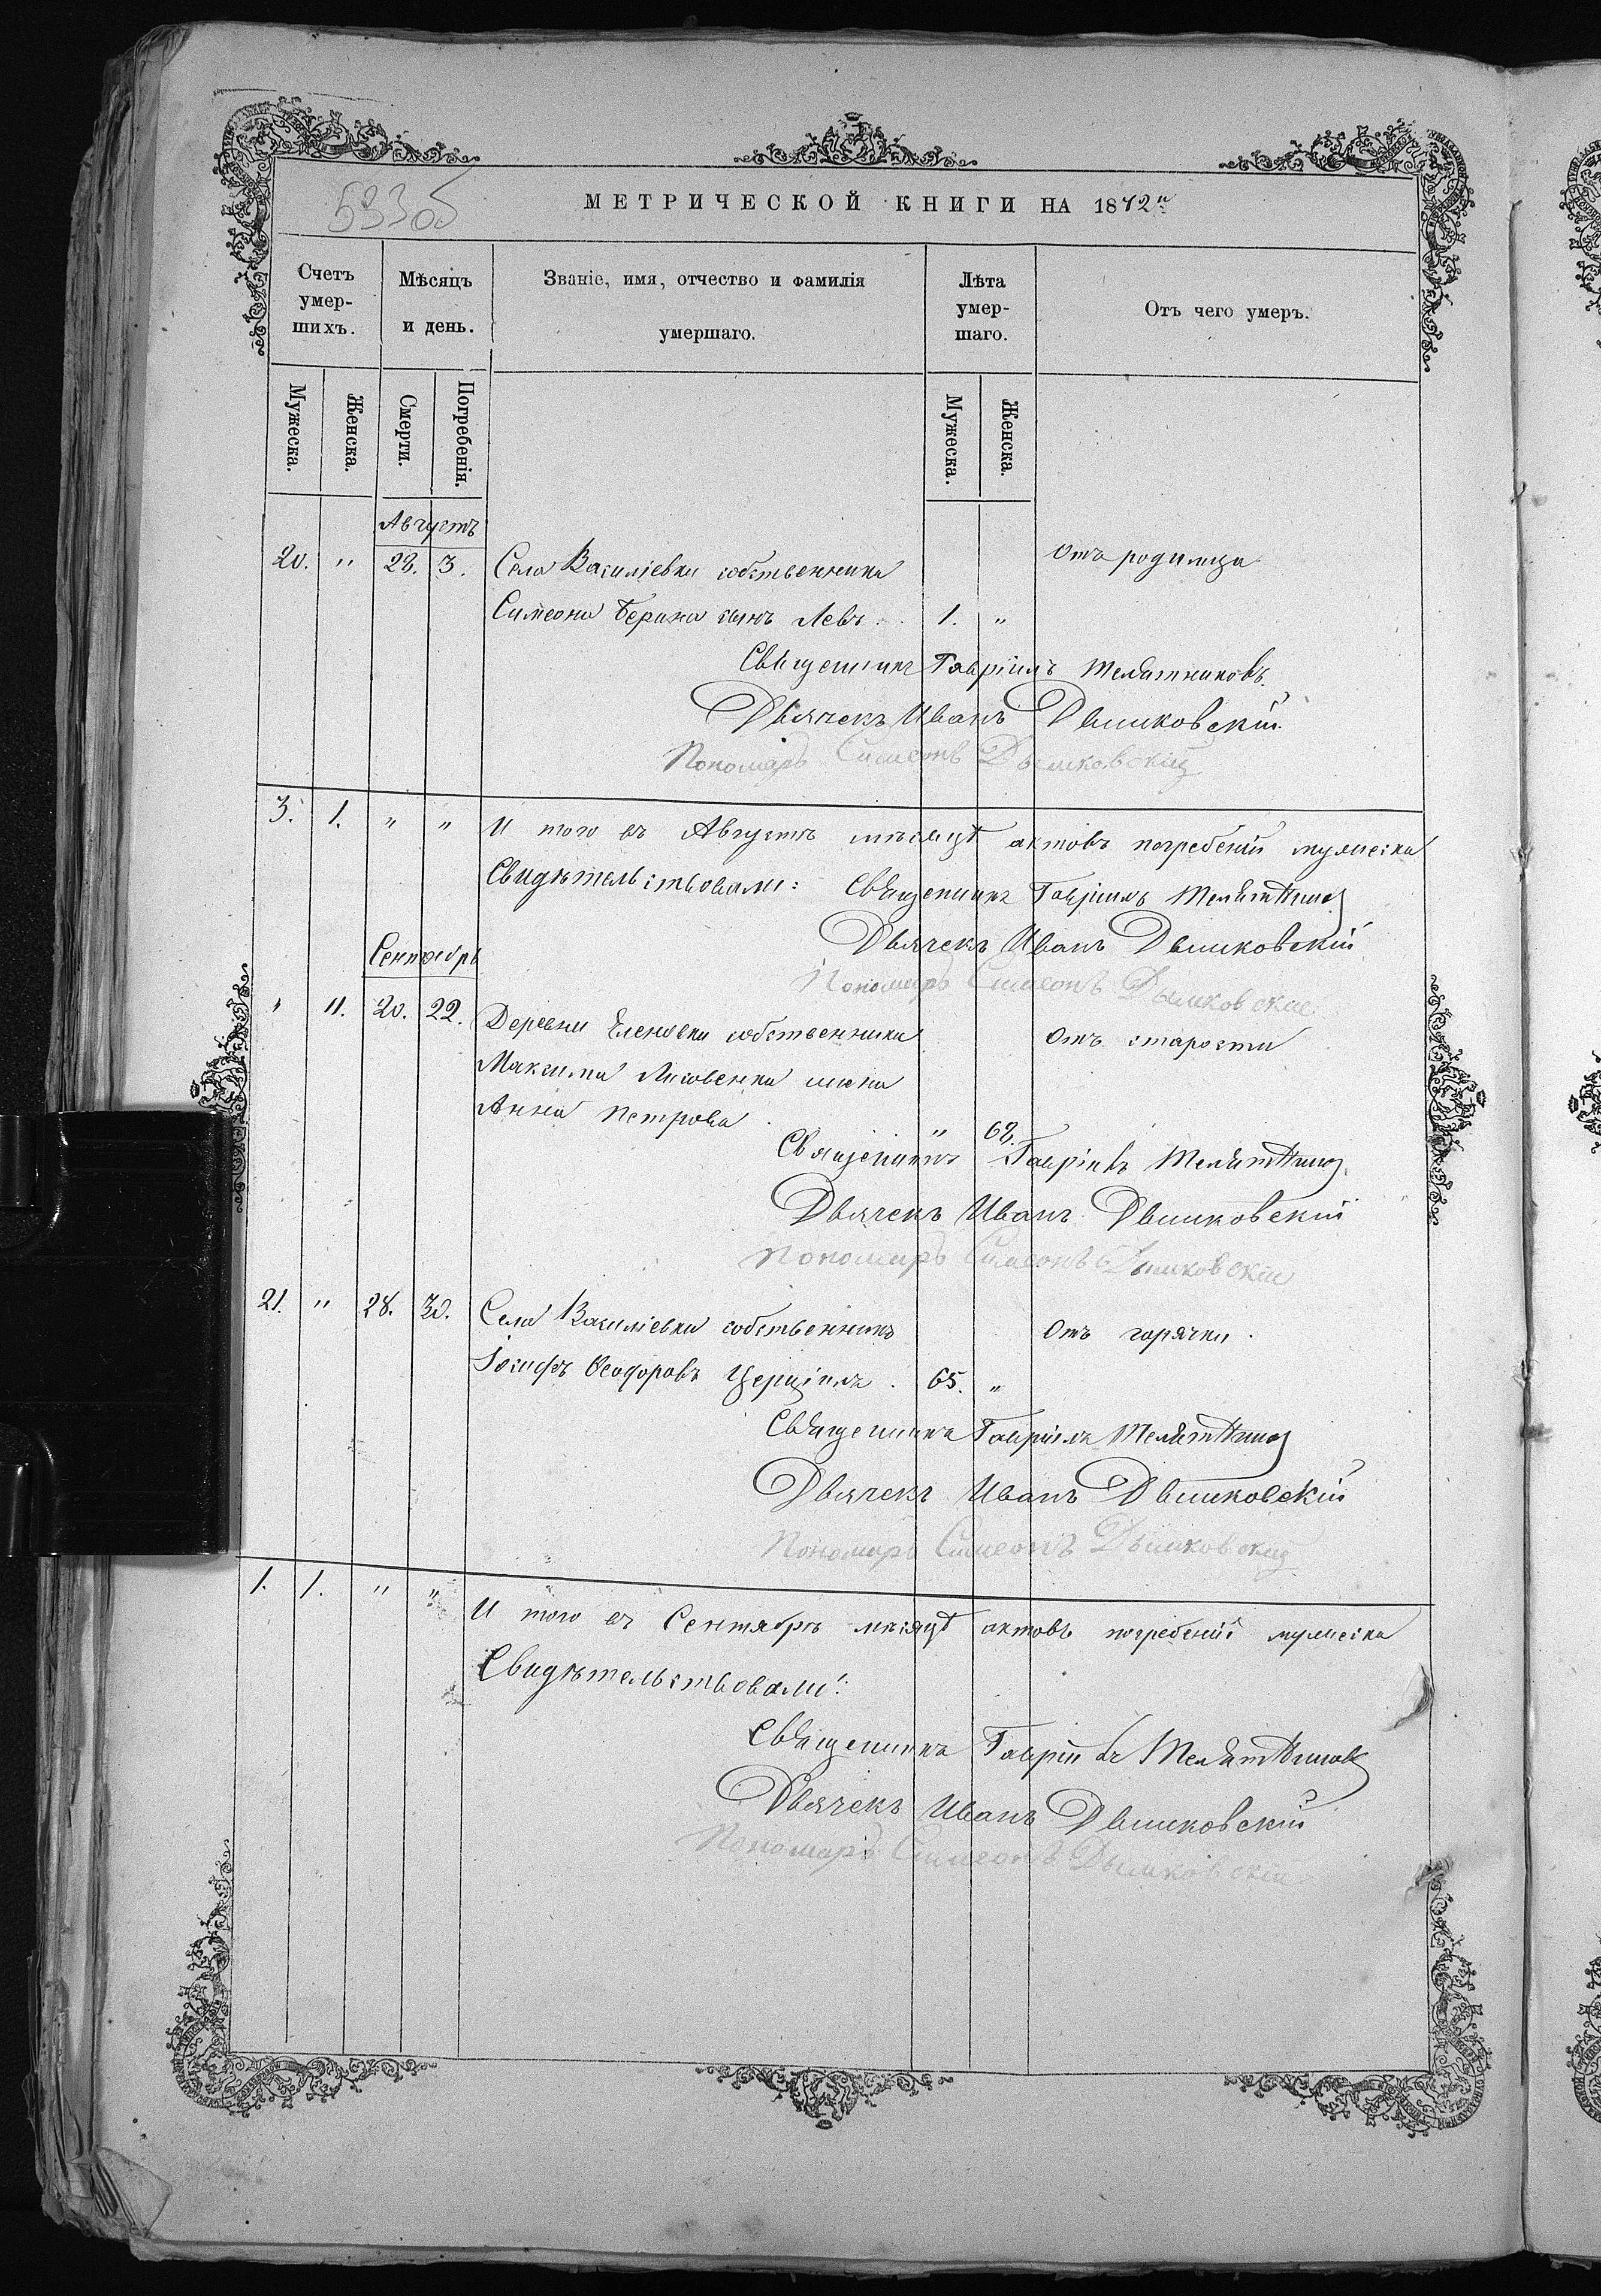 533 об
МЕТРИЧЕСКОЙ КНИГИ НА 1872
Счетъ умер-шихъ.
Мѣсяцъ и день.
Званіе, имя, отчество и фамилія умершаго.
Лѣта умер-шаго.
Отъ чего умеръ.
Мужеска. Женска. Смерти. Погребенія. Мужеска. Женска.
Августъ
20. " 28. 3. Села Василіевки собственника Отъ родимца
Симеона сынъ Левъ . . 1. "
Священникъ Гавріилъ Телятниковъ.
Дьячекъ Иванъ Дымковскій
Пономарь Симеонъ Дымковскій
3. 1. " " И того въ Августѣ мѣсяцѣ актовъ погребеній мужеска
Свидѣтельствовали: Священникъ Гавріилъ
Дьячекъ Иванъ Дымковскій
Пономарь Симеонъ Дымковскій
Сентябрь
" 11. 20. 22. Деревни Еленовки собственника Отъ старости
Максима Лисовенка жена
Анна Петрова . " 68.
Священникъ Гавріилъ
Дьячекъ Иванъ Дымковскій
Пономарь Симеонъ Дымковскій
21. " 28. 30. Села Василіевки собственникъ Отъ горячки .
Іосифъ Феодоровъ . 65. "
Священникъ Гавріилъ
Дьячекъ Иванъ Дымковскій
Пономарь Симеонъ Дымковскій
1. 1. " " И того въ Сентябрѣ мѣсяцѣ актовъ погребеній мужеска
Свидѣтельствовали:
Священникъ Гавріилъ Телятниковъ
Дьячекъ Иванъ Дымковскій
Пономарь Симеонъ Дымковскій